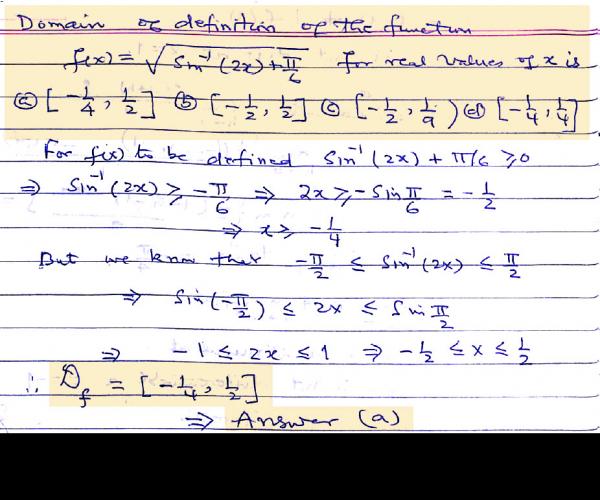 Domain of definition of the function
f(x) = √(Sin⁻¹(2x) + π/6) for real values of x is
(a) [-1/4, 1/2] (b) [-1/2, 1/2] (c) [-1/2, 1/9) (d) [-1/4, 1/4]
For f(x) to be defined Sin⁻¹(2x) + π/6 ≥ 0
⇒ Sin⁻¹(2x) ≥ -π/6 ⇒ 2x ≥ -Sin π/6 = -1/2
⇒ x ≥ -1/4
But we know that -π/2 ≤ Sin⁻¹(2x) ≤ π/2
⇒ Sin(-π/2) ≤ 2x ≤ Sin π/2
⇒ -1 ≤ 2x ≤ 1 ⇒ -1/2 ≤ x ≤ 1/2
∴ D_f = [-1/4, 1/2]
⇒ Answer (a)